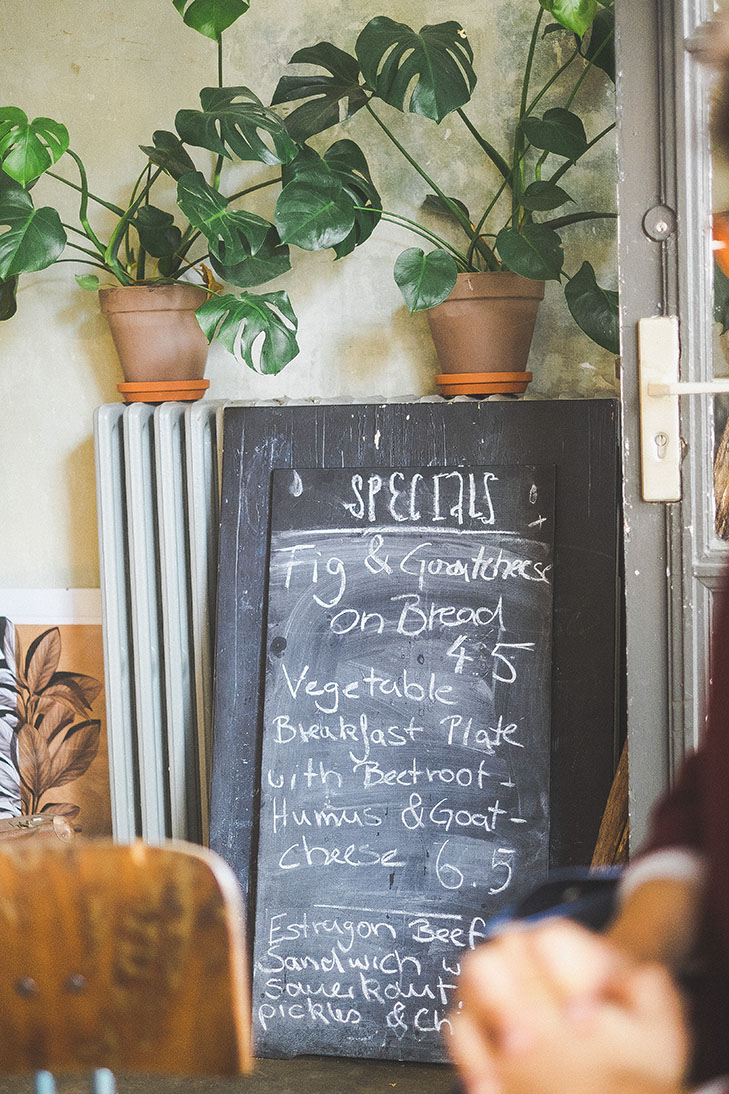 SPECIALS
Fig & Goatcheese
on Bread
4.5
Vegetable
Breakfast Plate
with Beetroot-
Humus & Goat-
cheese 6.5
Estragon Beef
Sandwich
sauerkraut
pickles &